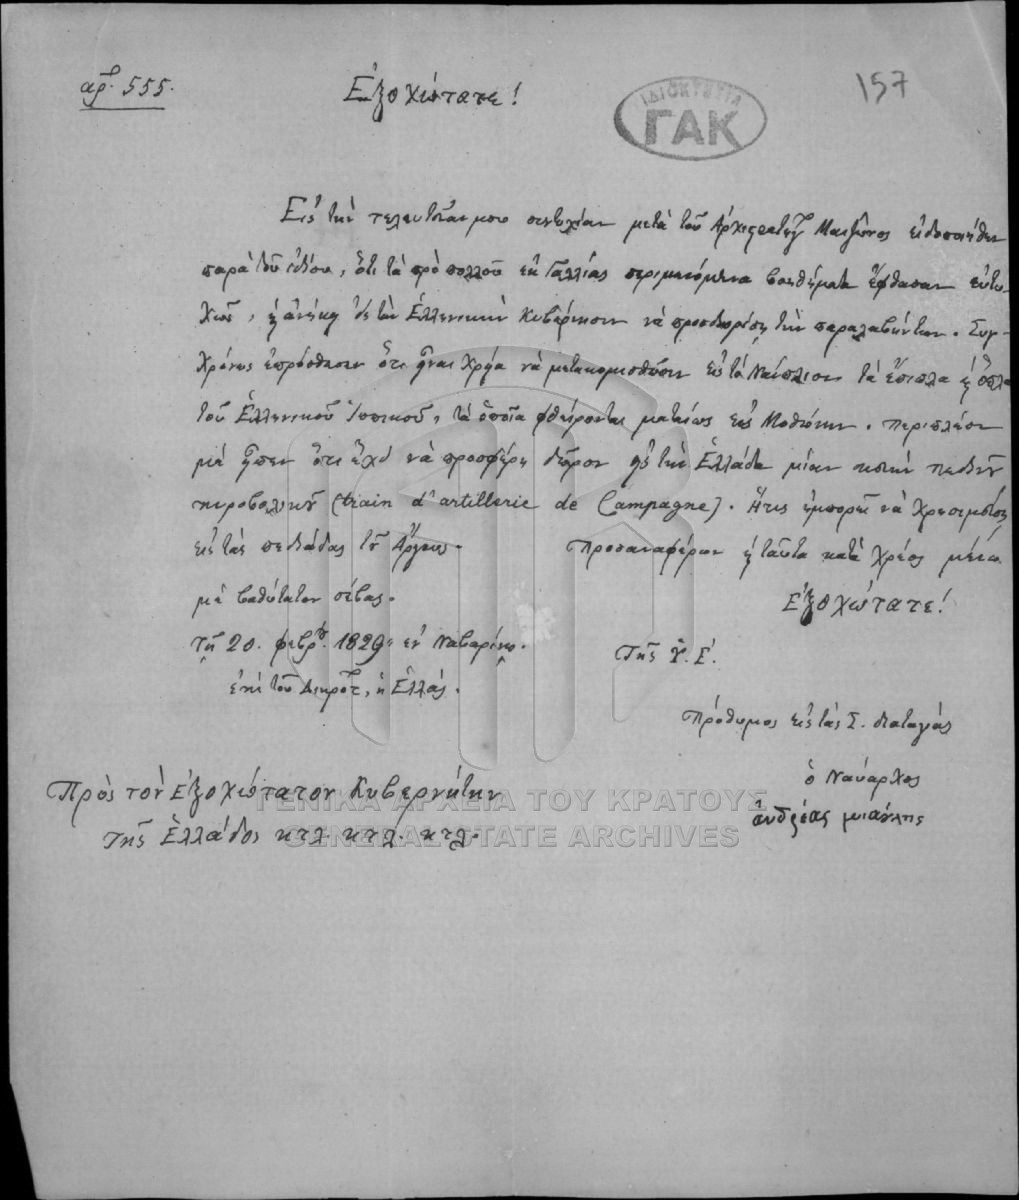 αρ. 555.
Ἐξοχώτατε!
157
ΙΔΙΟΚΤΗΣΙΑ
ΓΑΚ
Εἰς τὴν τελευταίαν μου συντυχίαν μετὰ τοῦ Ἀρχιστρατήγ. Μαιζῶνος εἰδοποιήθην
παρὰ τοῦ ἰδίου, ὅτι τὰ πρὸ πολλοῦ ἐκ Γαλλίας περιμενόμενα βοηθήματα ἔφθασαν εὐτυ-
χῶς, καὶ ἀνήκει εἰς τὴν Ἑλληνικὴν Κυβέρνησιν νὰ προσδιορίσῃ τὴν παραλαβὴν των. Συγ-
χρόνως ἐπρόσθεσεν ὅτι εἶναι χρεία νὰ μετακομισθῶσιν εἰς τὸ Ναύπλιον τὰ ἔπιπλα καὶ ὅπλα
τοῦ Ἑλληνικοῦ Ἱππικοῦ, τὰ ὁποῖα φθείρονται ματαίως εἰς Μοθώνην. Περιπλέον
μὲ εἶπεν ὅτι ἔχει νὰ προσφέρῃ δῶρον εἰς τὴν Ἑλλάδα μίαν πεδινοῦ
πυροβολικοῦ (train d'artillerie de Campagne). Ἥτις ἐμπορεῖ νὰ χρησιμεύσῃ
εἰς τὰς πεδιάδας τοῦ Ἄργους. Προσαναφέρων καὶ ταῦτα κατὰ χρέος μένω
μὲ βαθύτατον σέβας. Ἐξοχώτατε!
Τῇ 20. φεβρ. 1829 ἐν Ναβαρίνῳ. Τῆς Ὑ. Ἐ.
ἐπὶ τοῦ Δικρότ., ἡ Ἑλλάς.
Πρόθυμος εἰς τὰς Σ. διαταγάς
ὁ Ναύαρχος
ἀνδρέας μιαούλης
Πρὸς τὸν Ἐξοχώτατον Κυβερνήτην
τῆς Ἑλλάδος κτλ. κτλ. κτλ.
ΓΕΝΙΚΑ ΑΡΧΕΙΑ ΤΟΥ ΚΡΑΤΟΥΣ
GENERAL STATE ARCHIVES